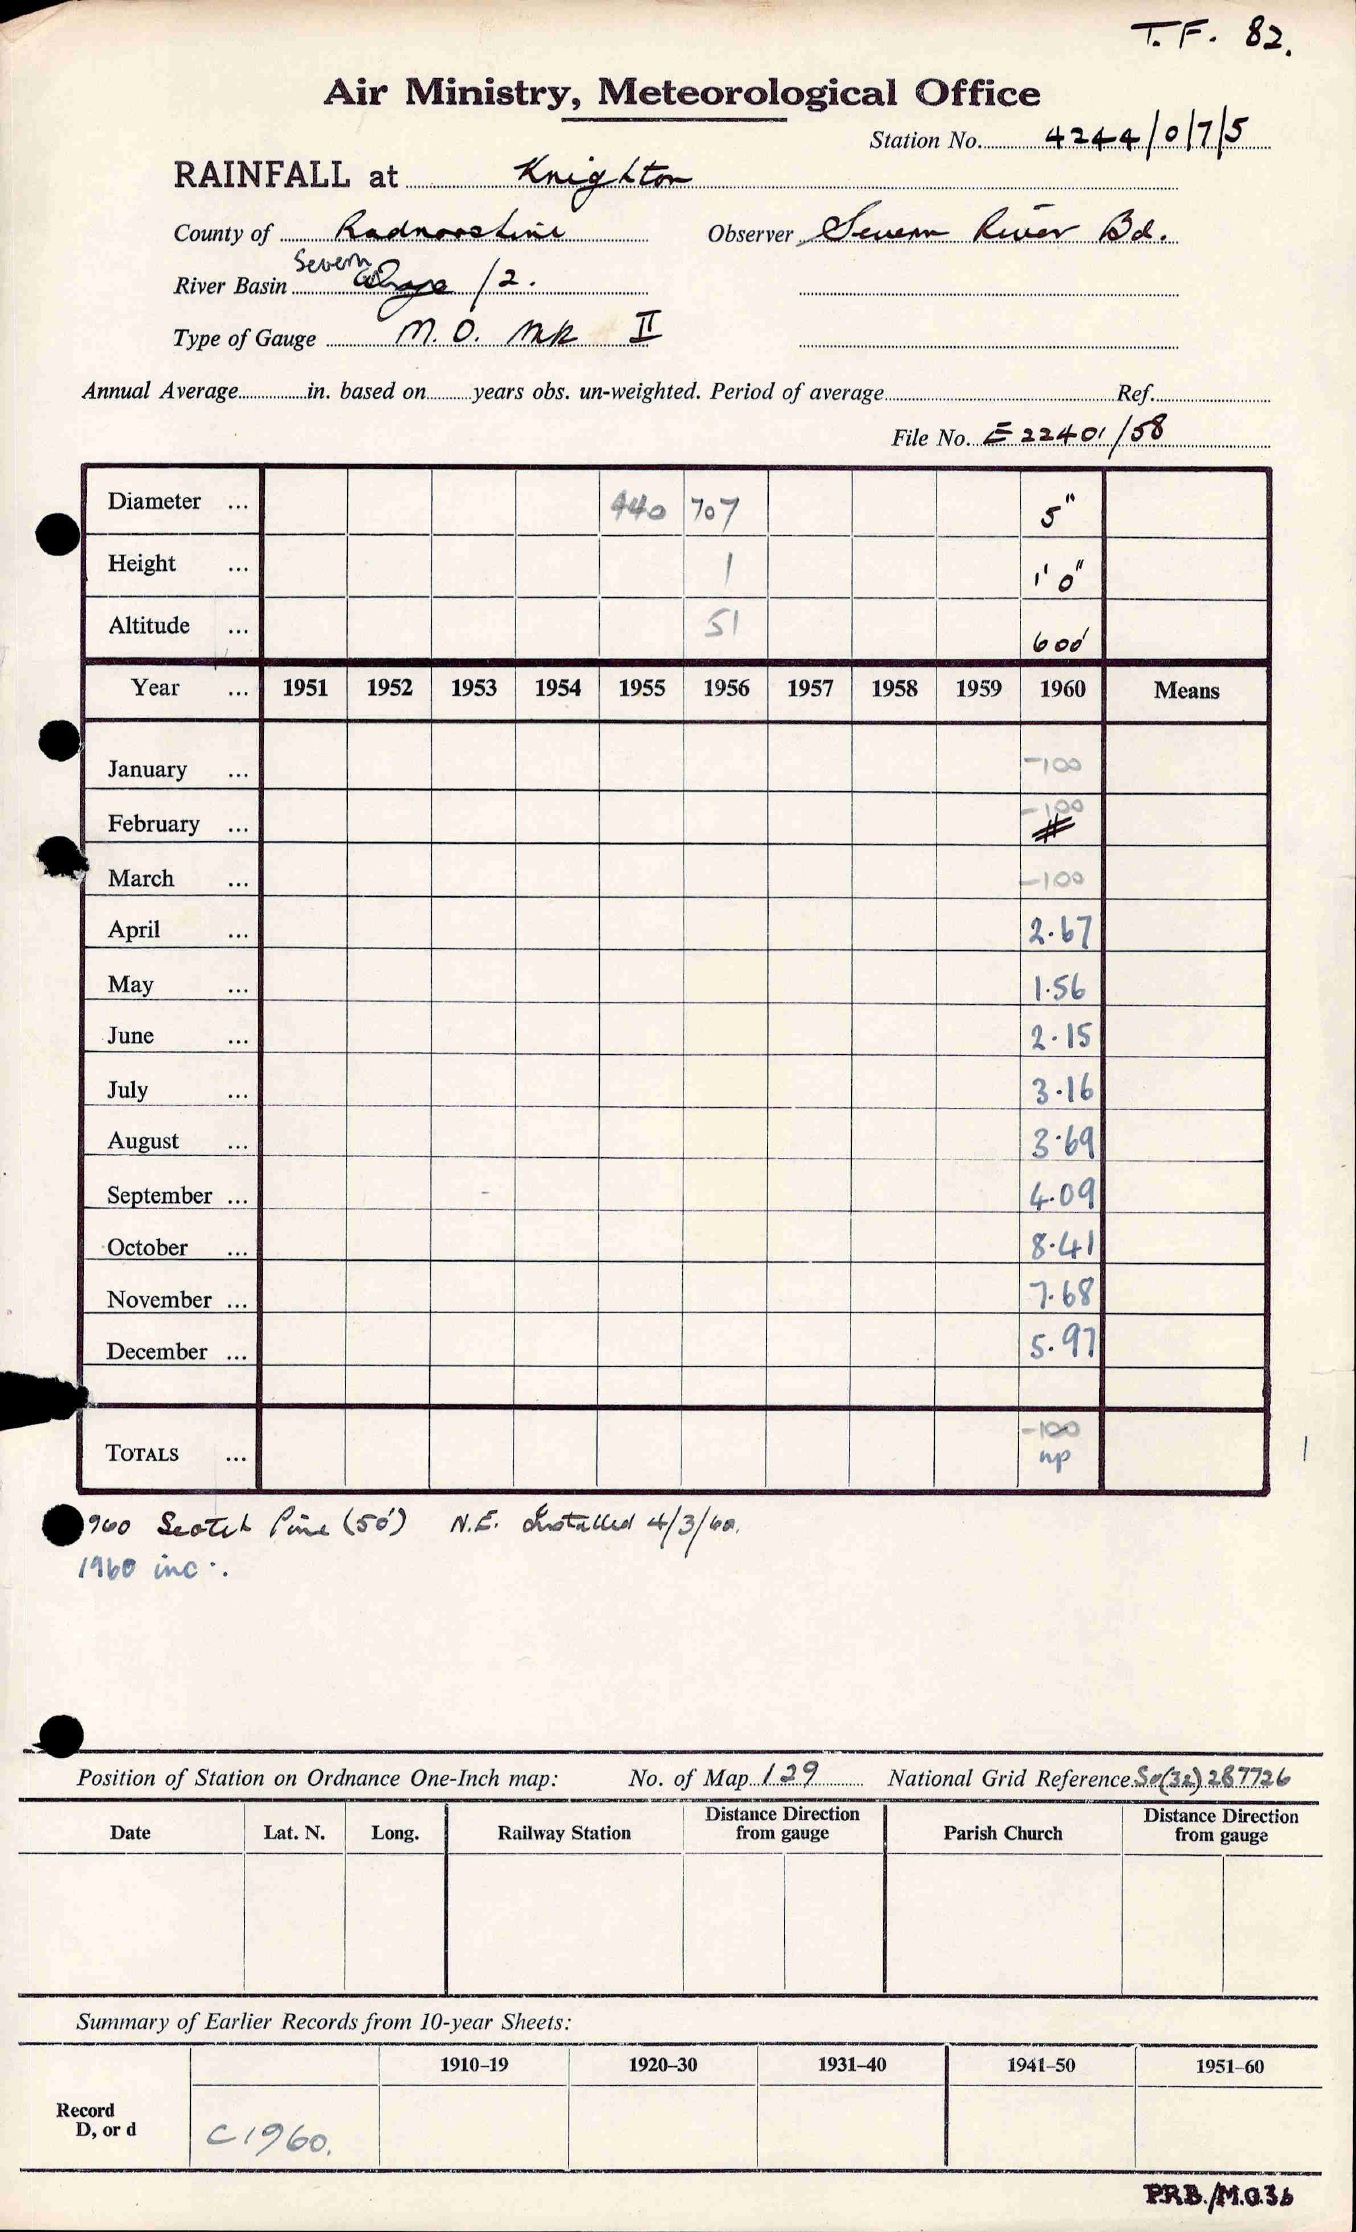 T. F. 82.
Air Ministry, Meteorological Office
Station No. 4244/0/7/5
RAINFALL at Knighton
County of Radnorshire Observer Severn River Bd.
Severn
River Basin /2.
Type of Gauge M.O. MK II
Annual Average in. based on years obs. un-weighted. Period of average Ref.
File No. E 22401/58
Diameter ... 440 707 5"
Height ... 1 1' 0"
Altitude ... 51 600'
Year ... 1951 1952 1953 1954 1955 1956 1957 1958 1959 1960 Means
January ... -100
February ... -100
March ... -100
April ... 2.67
May ... 1.56
June ... 2.15
July ... 3.16
August ... 3.69
September ... 4.09
October ... 8.41
November ... 7.68
December ... 5.97
-100
TOTALS ... np
960 Scotch Pine (50') N.E. Installed 4/3/60.
1960 inc.
Position of Station on Ordnance One-Inch map: No. of Map 129 National Grid Reference So(32)287726
Date Lat. N. Long. Railway Station Distance Direction from gauge Parish Church Distance Direction from gauge
Summary of Earlier Records from 10-year Sheets:
1910–19 1920–30 1931–40 1941–50 1951–60
Record
D, or d C1960.
P.R.B./M.O.3b